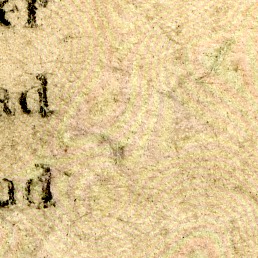 er
ad
ad